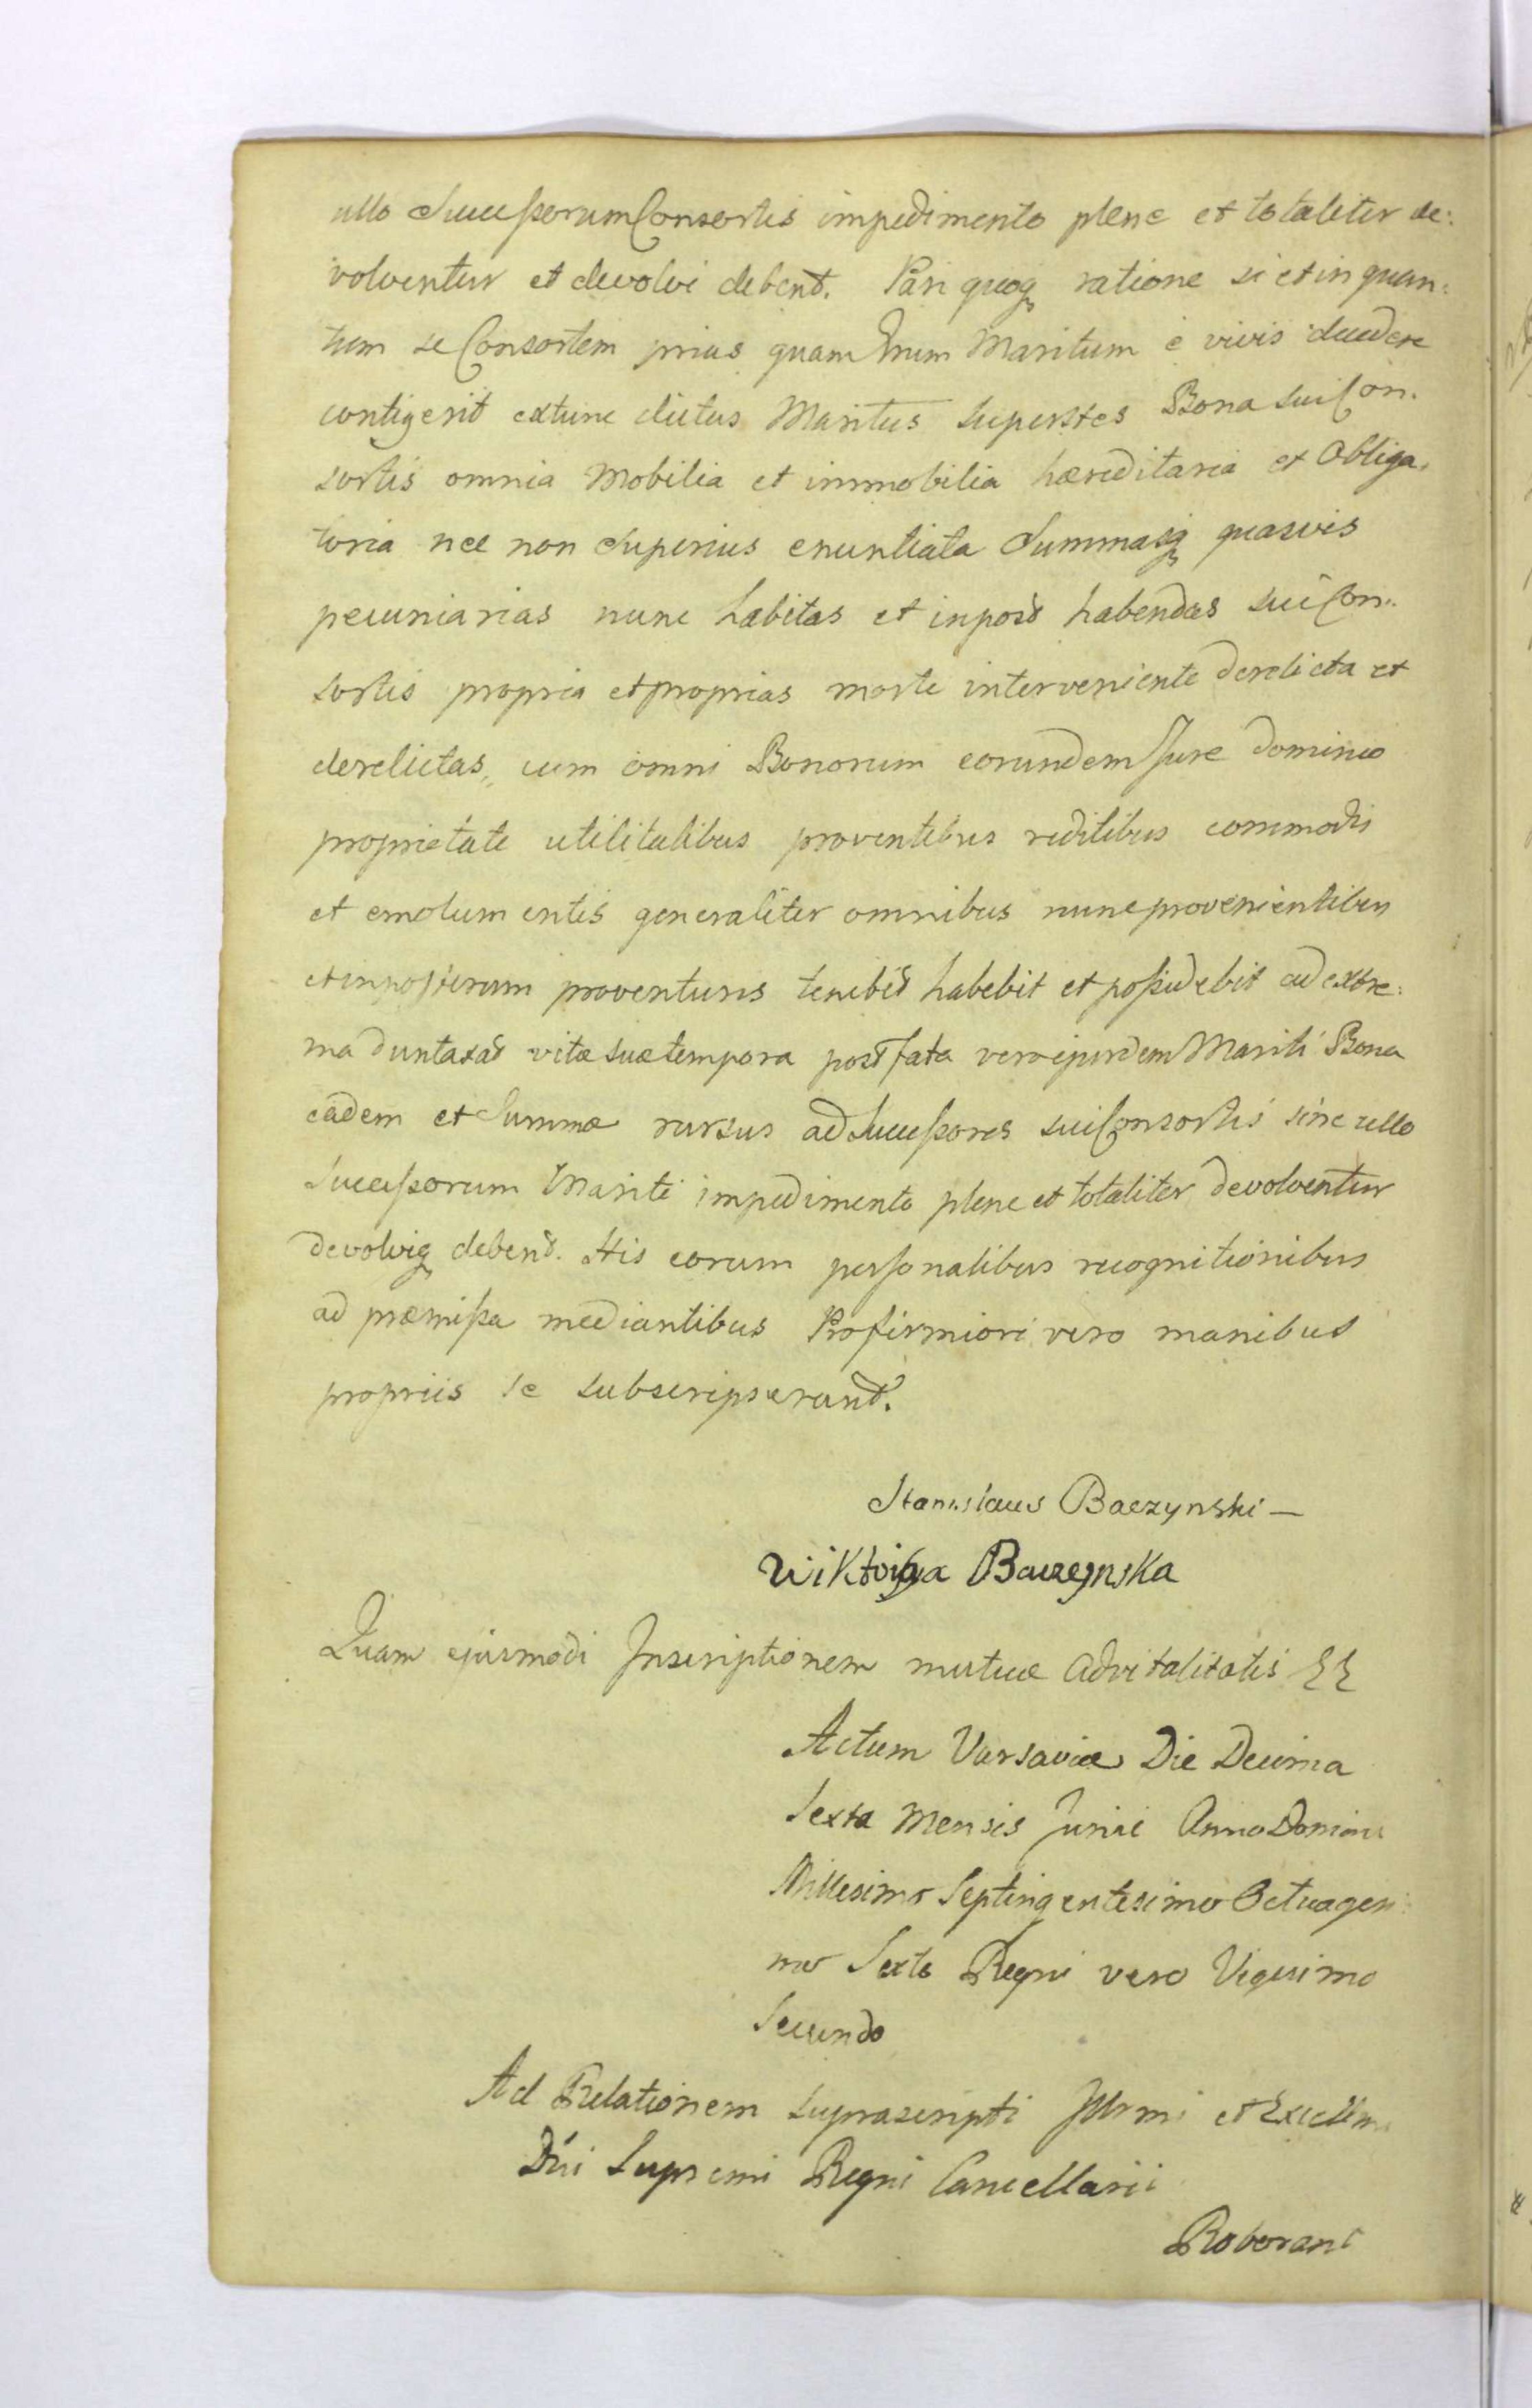 ullo Successorum Consortis impedimento plene et totaliter de:
volventur et devolvi debent. Pari quoq ratione si et in quan:
tum se Consortem prius quam Suum Maritum e vivis decedere
contigerit extunc dictus Maritus superstes Bona sui Con:
sortis omnia Mobilia et immobilia hæreditaria et Obliga:
toria nec non Superius enuntiata Summasq quasvis
pecuniarias nunc habitas et in post habendas sui Con:
sortis propria et proprias morte interveniente derelicta et
derelictas, cum omni Bonorum eorundem Jure dominio
proprietate utilitatibus proventibus reditibus commodis
et emolumentis generaliter omnibus nunc provenientibus
et in posterum proventuris tenebit habebit et possidebit ad extre:
ma duntaxat vitæ suæ tempora post fata vero ejusdem Mariti Bona
eadem et Summæ rursus ad Successores sui Consortis sine ullo
Successorum Mariti impedimento plene et totaliter devolventur
devolviq debent. His eorum personalibus recognitionibus
ad præmissa mediantibus Pro firmiori vero manibus
propriis se subscripserunt.
Stanislaus Baczynski —
Wiktoria Baczynska
Quam ejusmodi Inscriptionem mutuæ Advitalitatis
Actum Varsaviæ Die Decima
Sexta Mensis Junii Anno Domini
Millesimo Septingentesimo Octuagesi:
mo Sexto Regni vero Vigesimo
Secundo
Ad Relationem suprascripti Illrmi et Excellmi
Dni Supremi Regni Cancellarii
Roborant